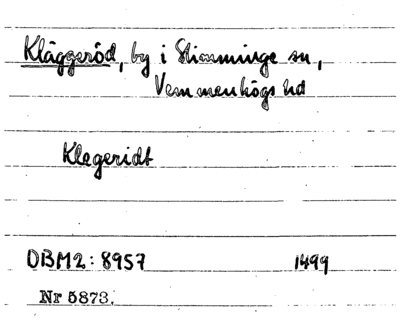 Kläggeröd, by i Slimminge sn,
Vemmenhögs hd
Klegeridt
DBM2: 8957 1499
Nr 5873.